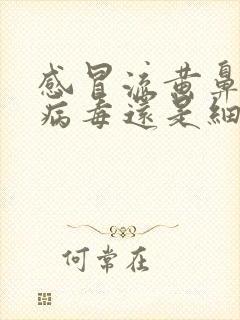 感冒流黄鼻
病毒还是细
何常在